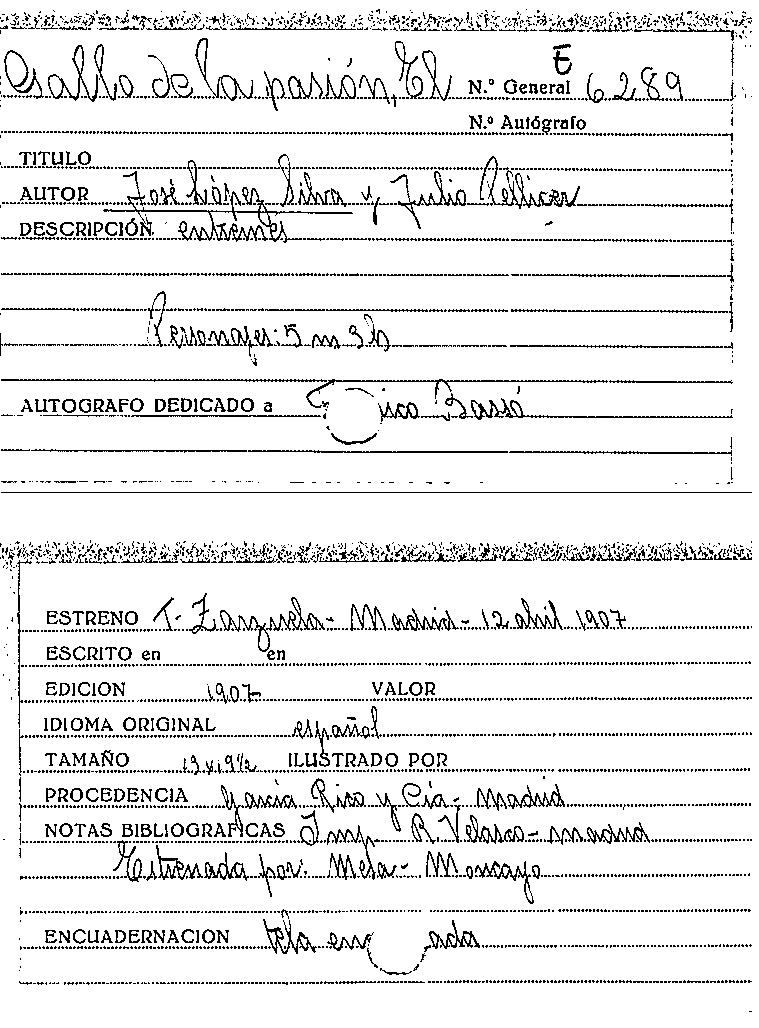 Gallo de la pasión, El
E
N.º General 6289
N.º Autógrafo
TITULO
AUTOR José López Silva y Julio Pellicer
DESCRIPCIÓN entremés
Personajes: 5 m 3 h
AUTOGRAFO DEDICADO a ico Bassó
ESTRENO T. Zarzuela - Madrid - 12 abril 1907
ESCRITO en en
EDICION 1907 VALOR
IDIOMA ORIGINAL español
TAMAÑO 13 x 19½ ILUSTRADO POR
PROCEDENCIA García Rico y Cía - Madrid
NOTAS BIBLIOGRAFICAS Imp R. Velasco - Madrid
Estrenada por: Mesa - Moncayo
ENCUADERNACION tela en ada